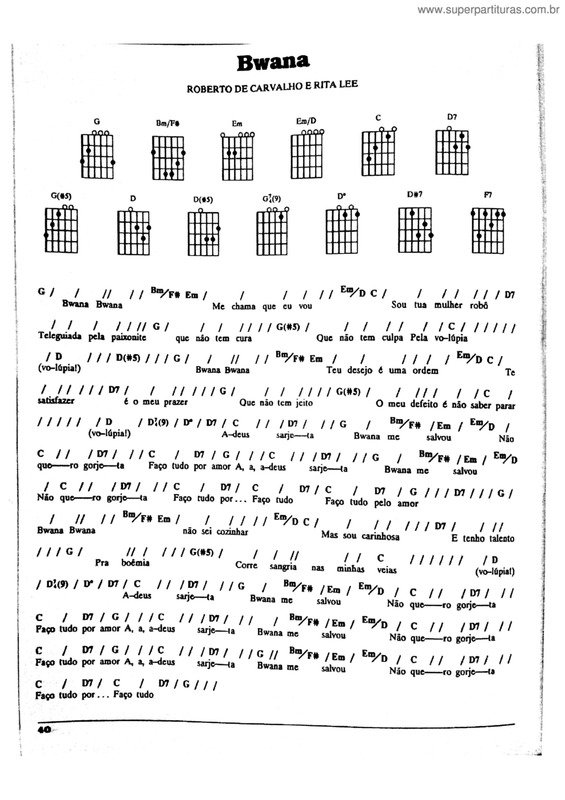 www.superpartituras.com.br
Bwana
ROBERTO DE CARVALHO E RITA LEE
G Bm/F# Em Em/D C D7
G(#5) D D(#5) G7/4(9) D° D#7 F7
G / / // / / Bm/F# Em / / / / / / Em/D C / / / / / / D7
Bwana Bwana Me chama que eu vou Sou tua mulher robô
/ / / / // // G / / / / / / / G(#5) / / / / / / C / / / / / /
Teleguiada pela paixonite que não tem cura Que não tem culpa Pela vo-lúpia
/ D / / / D(#5) / / / G / / // / / Bm/F# Em / / / / / / Em/D C /
(vo-lúpia!) Bwana Bwana Teu desejo é uma ordem Te
/ // / / / D7 / / // / / / G / / / / / / / G(#5) / / / / / / / C /
satisfazer é o meu prazer Que não tem jeito O meu defeito é não saber parar
/ / / / / / D / D7/4(9) / D° / D7 / C / / / D7 / / / G / Bm/F# / Em / Em/D
(vo-lúpia!) A-deus sarje—ta Bwana me salvou Não
C / / / D7 / / C / D7 / G / / / C / / / D7 / / / G / Bm/F# / Em / Em/D
que—ro gorje—ta Faço tudo por amor A, a, a-deus sarje—ta Bwana me salvou
/ C / / / D7 / / C / D7 / C / D7 / C / D7 / G / / / D7 / / / G /
Não que—ro gorje—ta Faço tudo por... Faço tudo Faço tudo pelo amor
/ // / / Bm/F# Em / / / / / Em/D C / / / / / / D7 / / //
Bwana Bwana não sei cozinhar Mas sou carinhosa E tenho talento
/ / / G / / / / / / G(#5) / / / \\ / / C / / / / / / / D
Pra boêmia Corre sangria nas minhas veias (vo-lúpia!)
/ D7/4(9) / D° / D7 / C / / / D7 / / / G / Bm/F# / Em / Em/D / C / / / D7 / /
A-deus sarje—ta Bwana me salvou Não que—ro gorje—ta
C / D7 / G / / / C / / / D7 / / / G / Bm/F# / Em / Em/D / C / / / D7 / /
Faço tudo por amor A, a, a-deus sarje—ta Bwana me salvou Não que—ro gorje—ta
C / D7 / G / / / C / / / D7 / / / G // Bm/F# / Em / Em/D / C / / / D7 / /
Faço tudo por amor A, a, a-deus sarje—ta Bwana me salvou Não que—ro gorje—ta
C / D7 / C / D7 / G / / /
Faço tudo por... Faço tudo
40